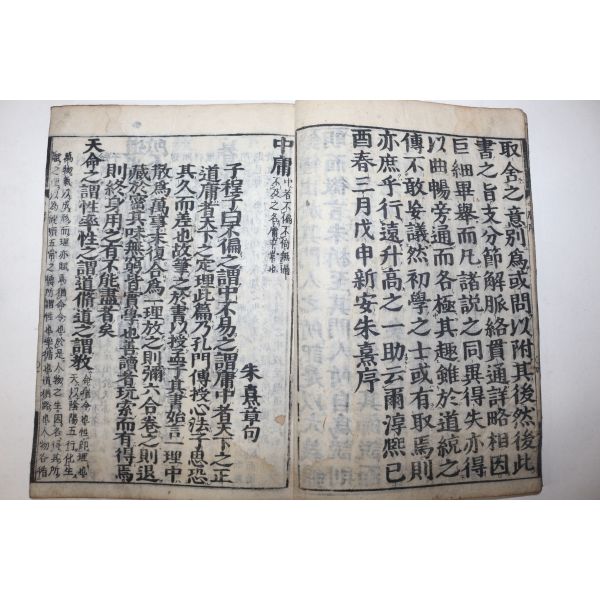 取舍之意別為或問以附其後然後此
書之旨支分節解脈絡貫通詳略相因
巨細畢擧而凡諸説之同異得失亦得
以曲暢旁通而各極其趣雖於道統之
傳不敢妄議然初學之士或有取焉則
亦庶乎行遠升高之一助云爾淳熙己
酉春三月戊申新安朱熹序
中庸
中者不偏不倚無過
不及之名庸平常也
朱熹章句
子程子曰不偏之謂中不易之謂庸中者天下之正
道庸者天下之定理此篇乃孔門傳授心法子思恐
其久而差也故筆之於書以授孟子其書始言一理中
散為萬事末復合為一理放之則彌六合卷之則退
藏於密其味無窮皆實學也善讀者玩索而有得焉
則終身用之有不能盡者矣
天命之謂性率性之謂道脩道之謂敎
命猶令也性即理也
天以陰陽五行化生
萬物氣以成形而理亦賦焉猶命令也於是人物之生因各得其所
賦之理以為健順五常之德所謂性也率循也道猶路也人物各循